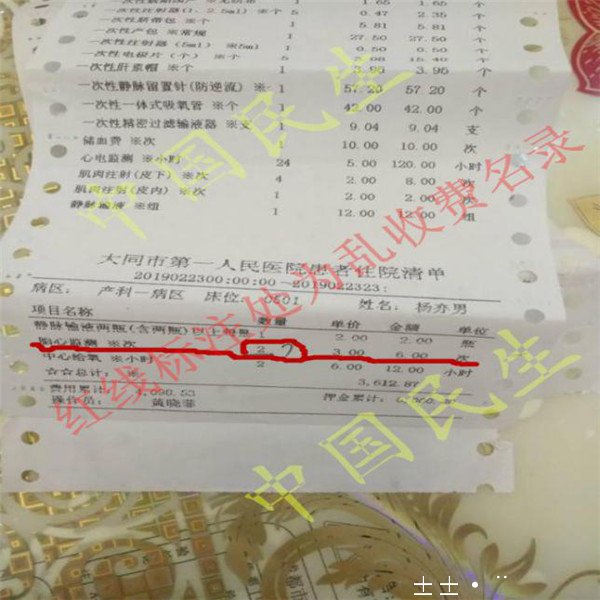 一次性注射器(1、2.5ml) ※支 5 0.47 2.35 个
一次性脐带包 ※个 1 5.81 5.81 个
一次性产包 ※常规 1 27.50 27.50 个
一次性注射器(5ml) ※支 1 0.50 0.50 个
一次性电极片(个) ※个 5 3.08 15.40 个
一次性肝素帽 ※个 1 3.95 3.95 个
一次性静脉留置针(防逆流) ※个 1 57.20 57.20 个
一次性一体式吸氧管 ※个 1 42.00 42.00 个
一次性精密过滤输液器 ※支 1 9.04 9.04 支
储血费 ※次 1 10.00 10.00 次
心电监测 ※小时 24 5.00 120.00 小时
肌肉注射(皮下) ※次 4 2.00 8.00 次
肌肉注射(皮内) ※次 1 2.00 2.00 次
静脉输液 ※组 1 12.00 12.00 组
大同市第一人民医院患者住院清单
2019022300:00:00~2019022323:
病区: 产科一病区 床位: 0501 姓名: 杨亦男
项目名称 数量 单价 金额 单位
静脉输液两瓶(含两瓶)以上每瓶 1 2.00 2.00 瓶
胎心监测 ※次 2 ? 3.00 6.00 次
中心给氧 ※小时 2 6.00 12.00 小时
☆☆总计: ※ 3,612.87
费用累计: 押金累计:
操作员: 黄晓菲
红线标注处为乱收费名录
中国民生
中国民生